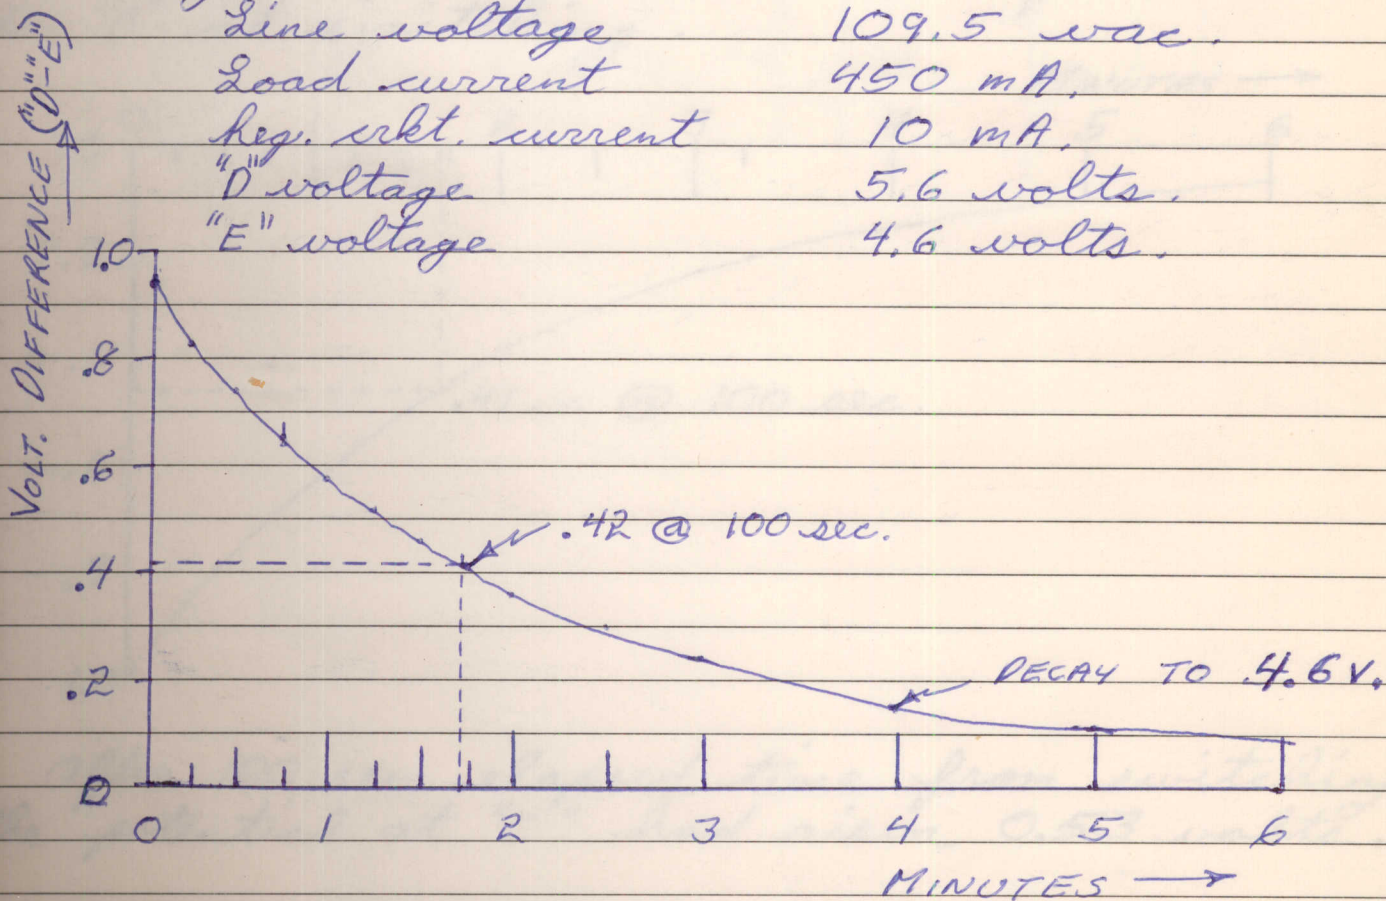 Line voltage 109.5 vac.
Load current 450 mA.
Reg. crkt. current 10 mA.
"D" voltage 5.6 volts.
"E" voltage 4.6 volts.
VOLT. DIFFERENCE ("D"-"E") →
1.0
.8
.6
.42 @ 100 sec.
.4
.2
DECAY TO 4.6 V.
0
0 1 2 3 4 5 6
MINUTES →